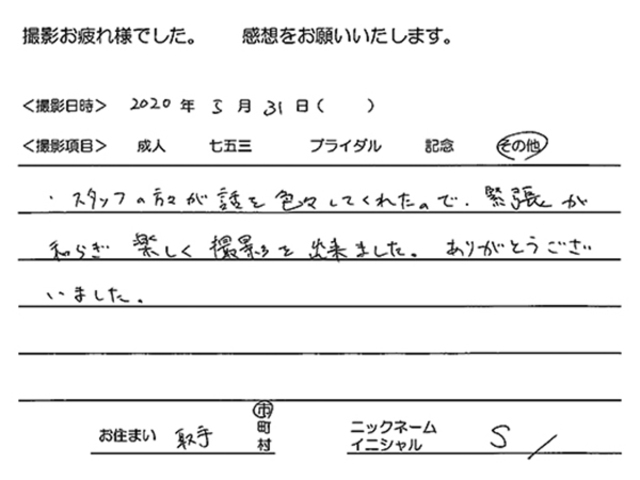 撮影お疲れ様でした。 感想をお願いいたします。
＜撮影日時＞ 2020 年 5 月 31 日( )
＜撮影項目＞ 成人 七五三 ブライダル 記念 その他
・スタッフの方々が話を色々してくれたので、緊張が
和らぎ 楽しく 撮影を出来ました。 ありがとうござ
いました。
お住まい 取手 市 町 村 ニックネーム イニシャル S